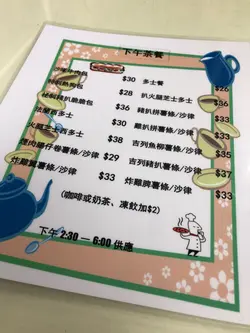 下午茶餐
$30 多士餐 $26
$36 扒火腿芝士多士 $28
脆脆包 $36 豬扒拼薯條/沙律 $35
$30 雞扒拼薯條/沙律 $33
芝士西多士 $38 吉列魚柳薯條/沙律 $33
煙肉腸仔卷薯條/沙律 $29 吉列豬扒薯條/沙律 $33
炸雞翼薯條/沙律 $33 炸雞脾薯條/沙律 $33
(咖啡或奶茶、凍飲加$2)
下午 2:30 — 6:00 供應